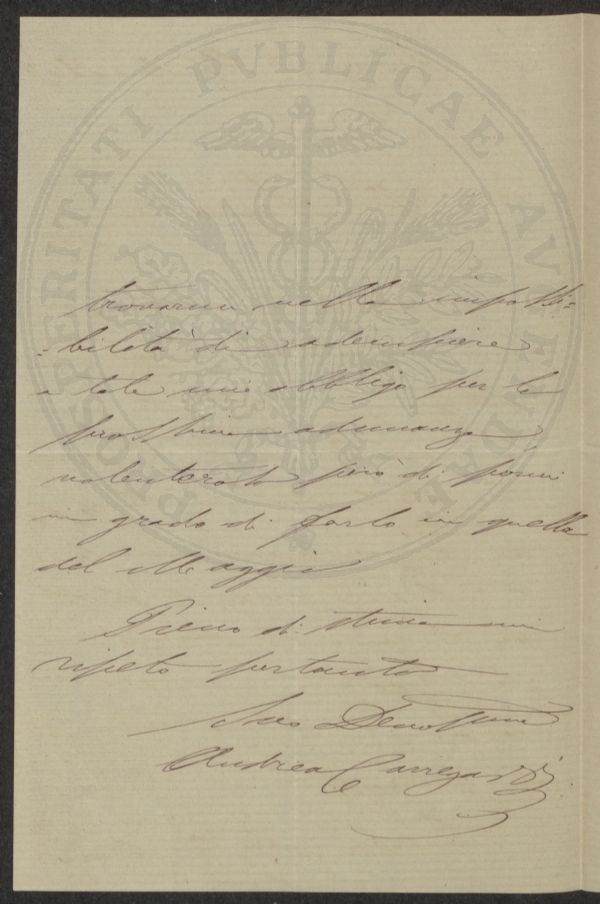 PROSPERITATI PVBLICAE AVGENDAE
trovarmi nella impossi=
=bilità di adempiere
a tale mio obbligo per la
prossima adunanza
volenteroso però di pormi
in grado di farlo in quella
del Maggio
Pieno di stima mi
ripeto pertanto
Suo Devotissimo
Andrea